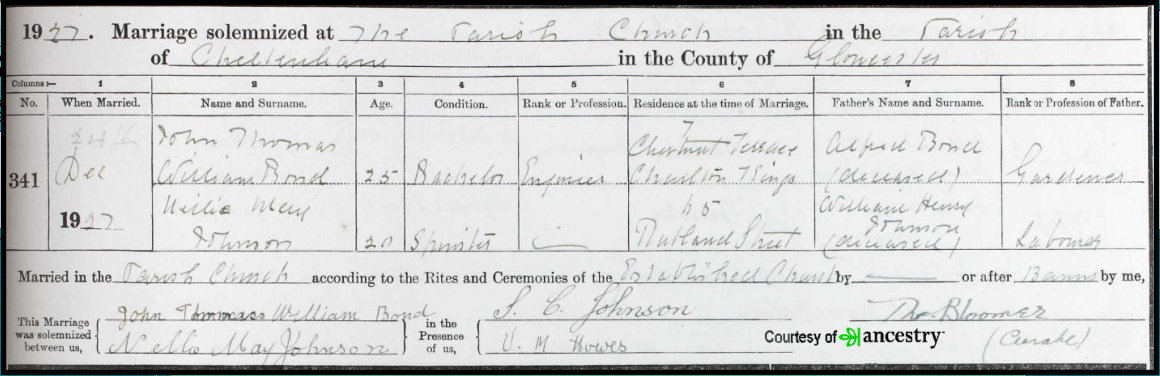 1927. Marriage solemnized at The Parish Church in the Parish
of Cheltenham in the County of Gloucester
Columns:— 1 2 3 4 5 6 7 8
No. When Married. Name and Surname. Age. Condition. Rank or Profession. Residence at the time of Marriage. Father's Name and Surname. Rank or Profession of Father.
341
24th
Dec
1927
John Thomas
William Bond
25 Bachelor Engineer
7
Chestnut Terrace
Charlton Kings
Alfred Bond
(deceased)
Gardener
Nellie May
Johnson
20 Spinster —
Rutland Street
William Henry
Johnson
(deceased)
Labourer
Married in the Parish Church according to the Rites and Ceremonies of the Established Church by — or after Banns by me,
This Marriage
was solemnized
between us,
John Thomas William Bond
Nellie May Johnson
in the
Presence
of us,
S. C. Johnson
V. M Howes
Tho. Bloomer
(Curate)
Courtesy of ancestry